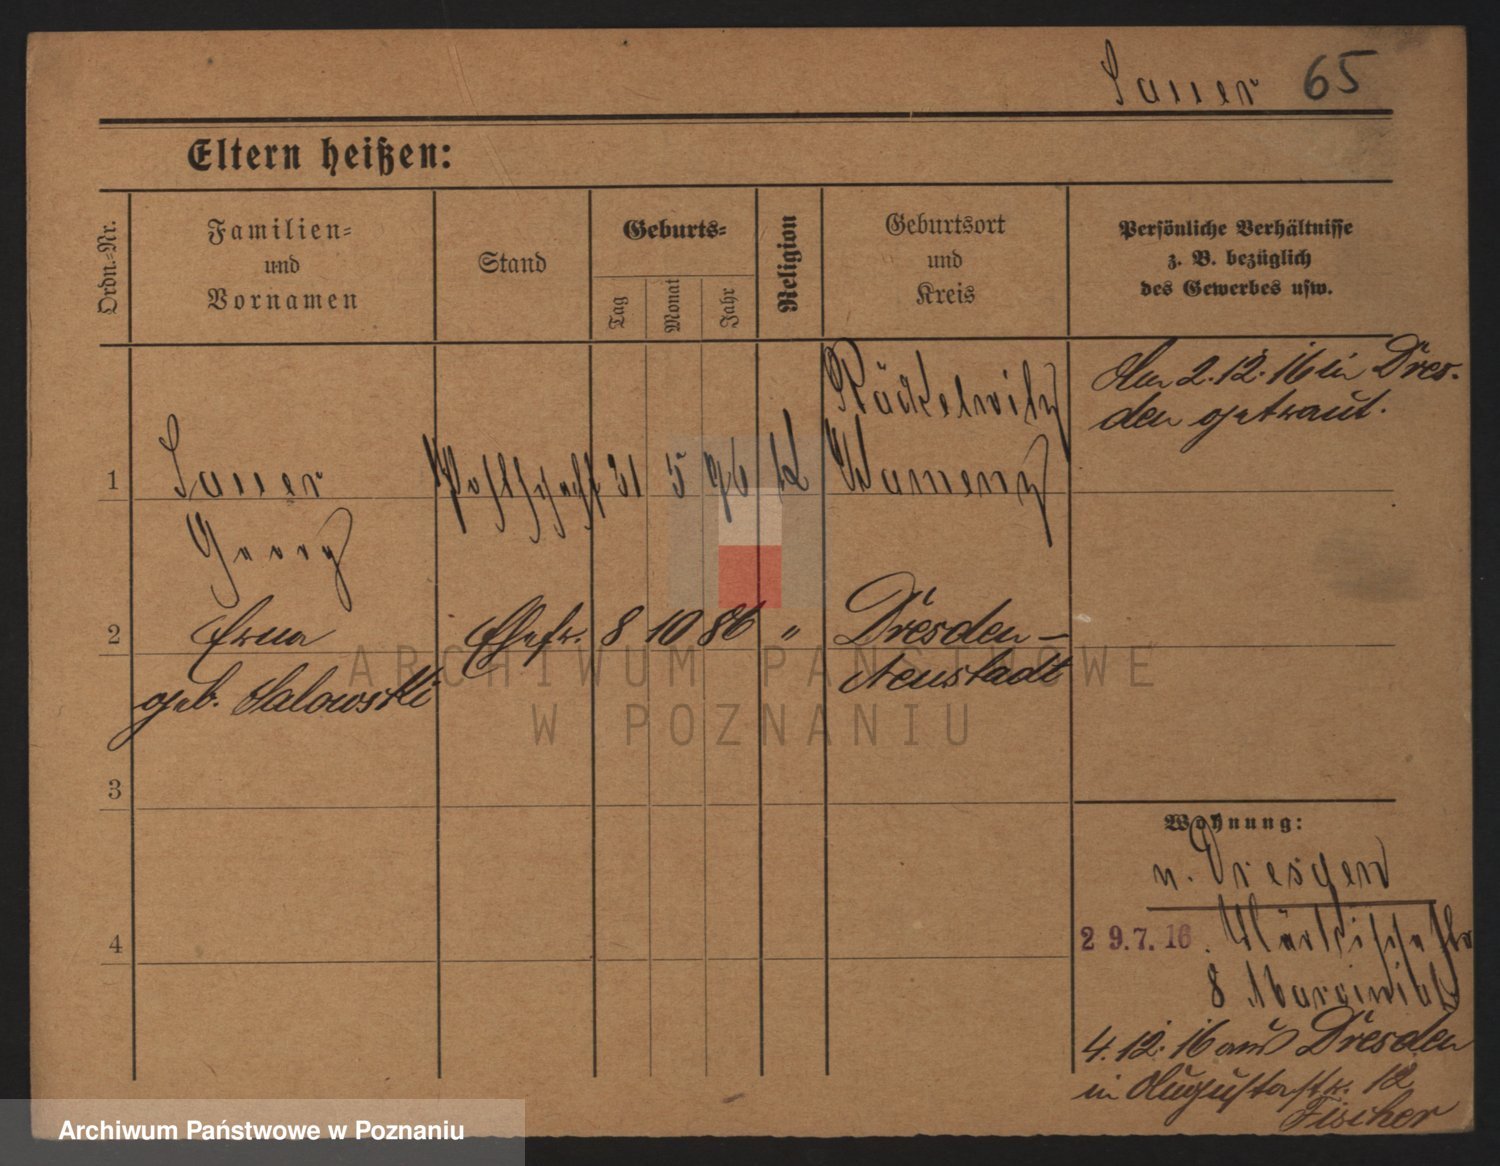 Sauer 65
Eltern heißen:
Ordn.-Nr.
Familien-
und
Vornamen
Stand
Geburts-
Tag
Monat
Jahr
Religion
Geburtsort
und
Kreis
Persönliche Verhältnisse
z. B. bezüglich
des Gewerbes usw.
Am 2.12.16 in Dres-
den getraut.
1 Sauer 31 5 K Kamenz
Georg
2 Erna Ehefr. 8 10 86 " Dresden-
geb. Salowski Neustadt
3
4
Wohnung:
n. Dresden
29.7.16. Märkische Str
8
4.12.16 aus Dresden
in Augustastr. 12
Fischer
ARCHIWUM PAŃSTWOWE
W POZNANIU
Archiwum Państwowe w Poznaniu